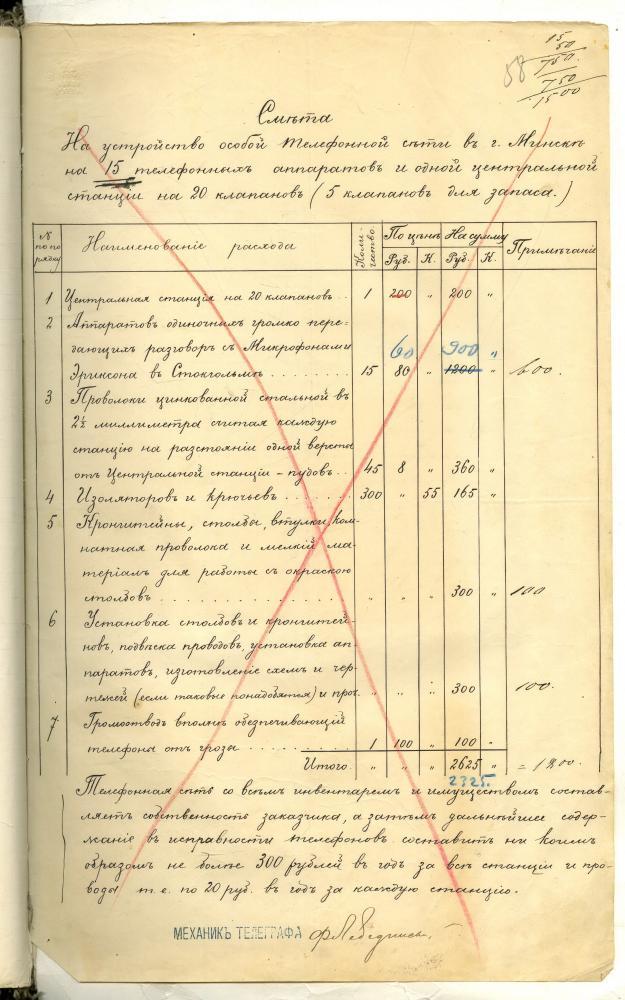 58
15
50
750.
750
1500
Смѣта
На устройство особой телефонной сѣти въ г. Минскѣ
на 15 телефонныхъ аппаратовъ и одной центральной
станціи на 20 клапановъ (5 клапановъ для запаса.)
№ по порядку Наименованіе расхода Количество По цѣнѣ На сумму Примѣчаніе
Руб. К. Руб. К.
1 Центральная станція на 20 клапановъ . . 1 200 " 200 "
2 Аппаратовъ одиночныхъ громко пере-
дающихъ разговоръ съ Микрофонами 60 900 "
Эриксона въ Стокгольмѣ . . . . . . . . 15 80 " 1200 " 600.
3 Проволоки цинкованной стальной въ
2½ миллиметра считая каждую
станцію на разстояніи одной версты
отъ Центральной станціи – пудовъ . . 45 8 " 360 "
4 Изоляторовъ и крючьевъ . . . . . . 300 " 55 165 "
5 Кронштейны, столбы, втулки, ком-
натная проволока и мелкій ма-
теріалъ для работы съ окраскою
столбовъ . . . . . . . . . . . . . . " " " 300 " 100
6 Установка столбовъ и кронштей-
новъ, подвѣска проводовъ, установка ап-
паратовъ, изготовленіе схемъ и чер-
тежей (если таковые понадобятся) и проч. " " " 300 " 100.
7 Громоотводъ вполнѣ обезпечивающій
телефоны отъ грозы . . . . . . . . 1 100 " 100 "
Итого. " " " 2625 " = 1200.
2325.
Телефонная сѣть со всѣмъ инвентаремъ и имуществомъ состав-
ляетъ собственность заказчика, а затѣмъ дальнѣйшее содер-
жаніе въ исправности телефоновъ составитъ ни коимъ
образомъ не болѣе 300 рублей въ годъ за всѣ станціи и про-
воды т.е. по 20 руб. въ годъ за каждую станцію.
МЕХАНИКЪ ТЕЛЕГРАФА